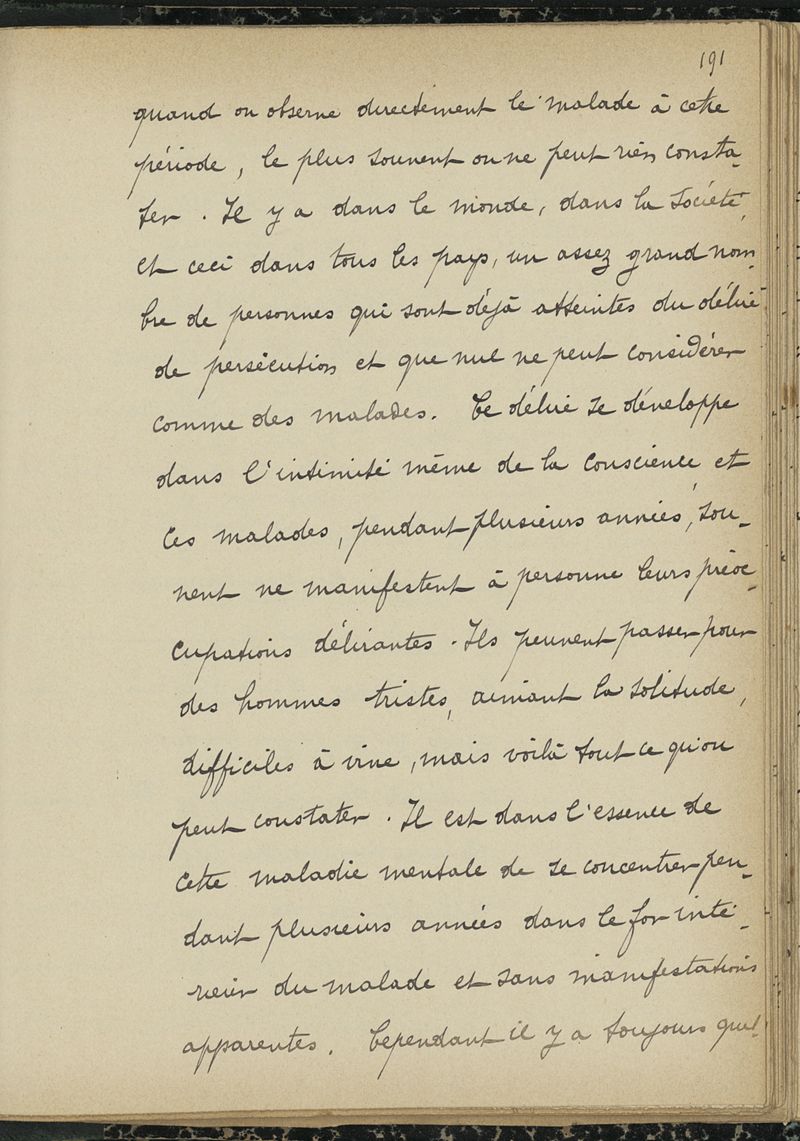 191
quand on observe directement le malade à cette
période, le plus souvent on ne peut rien consta-
ter. Il y a dans le monde, dans la société,
et ceci dans tous les pays, un assez grand nom-
bre de personnes qui sont déjà atteintes du délire
de persécution et que nul ne peut considérer
comme des malades. Ce délire se développe
dans l'intimité même de la conscience et
ces malades, pendant plusieurs années, sou-
vent ne manifestent à personne leurs préoc-
cupations délirantes. Ils peuvent passer pour
des hommes tristes, aimant la solitude,
difficiles à vivre, mais voilà tout ce qu'on
peut constater. Il est dans l'essence de
cette maladie mentale de se concentrer pen-
dant plusieurs années dans le for inté-
rieur du malade et sans manifestations
apparentes. Cependant il y a toujours quel-